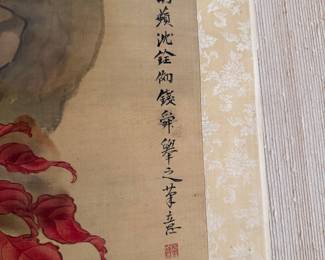 蘋沈銓倣錢舜舉之筆意